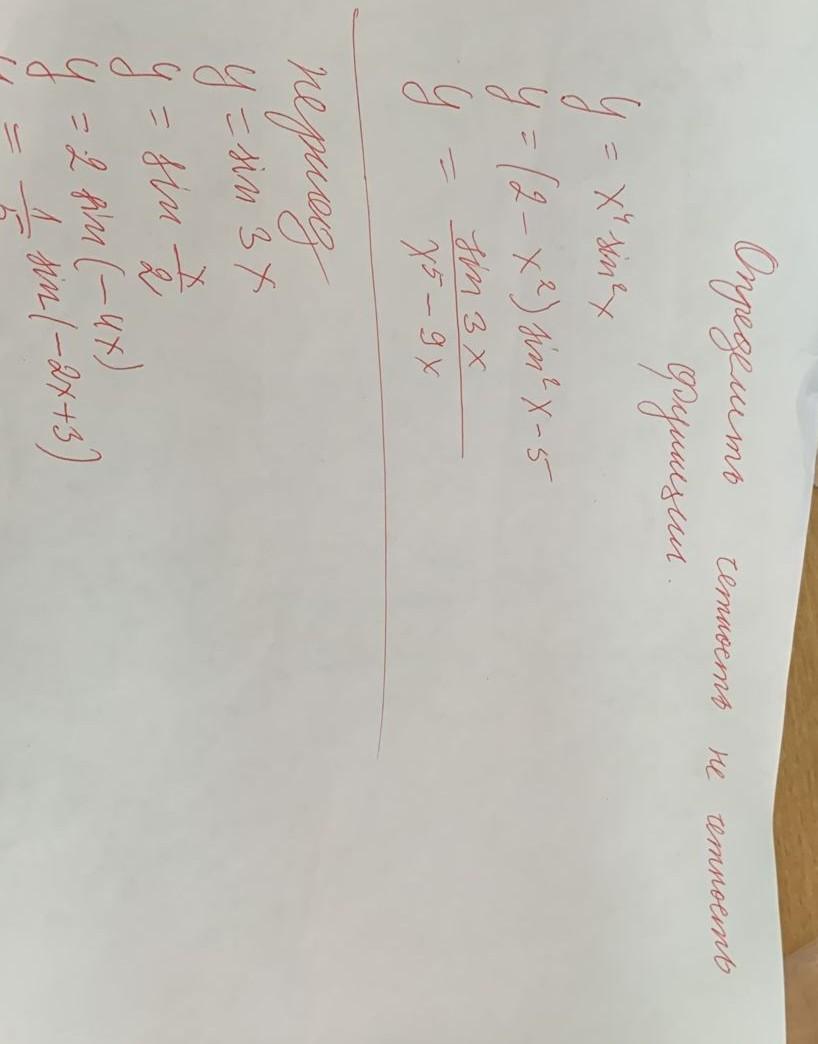 Определить четность не четность
функции.
y = x⁴ sin²x
y = (2 - x²) sin²x - 5
y = sin 3x / x⁵ - 9x
период
y = sin 3x
y = sin x/2
y = 2 sin(-4x)
y = 1/5 sin(-2x+3)